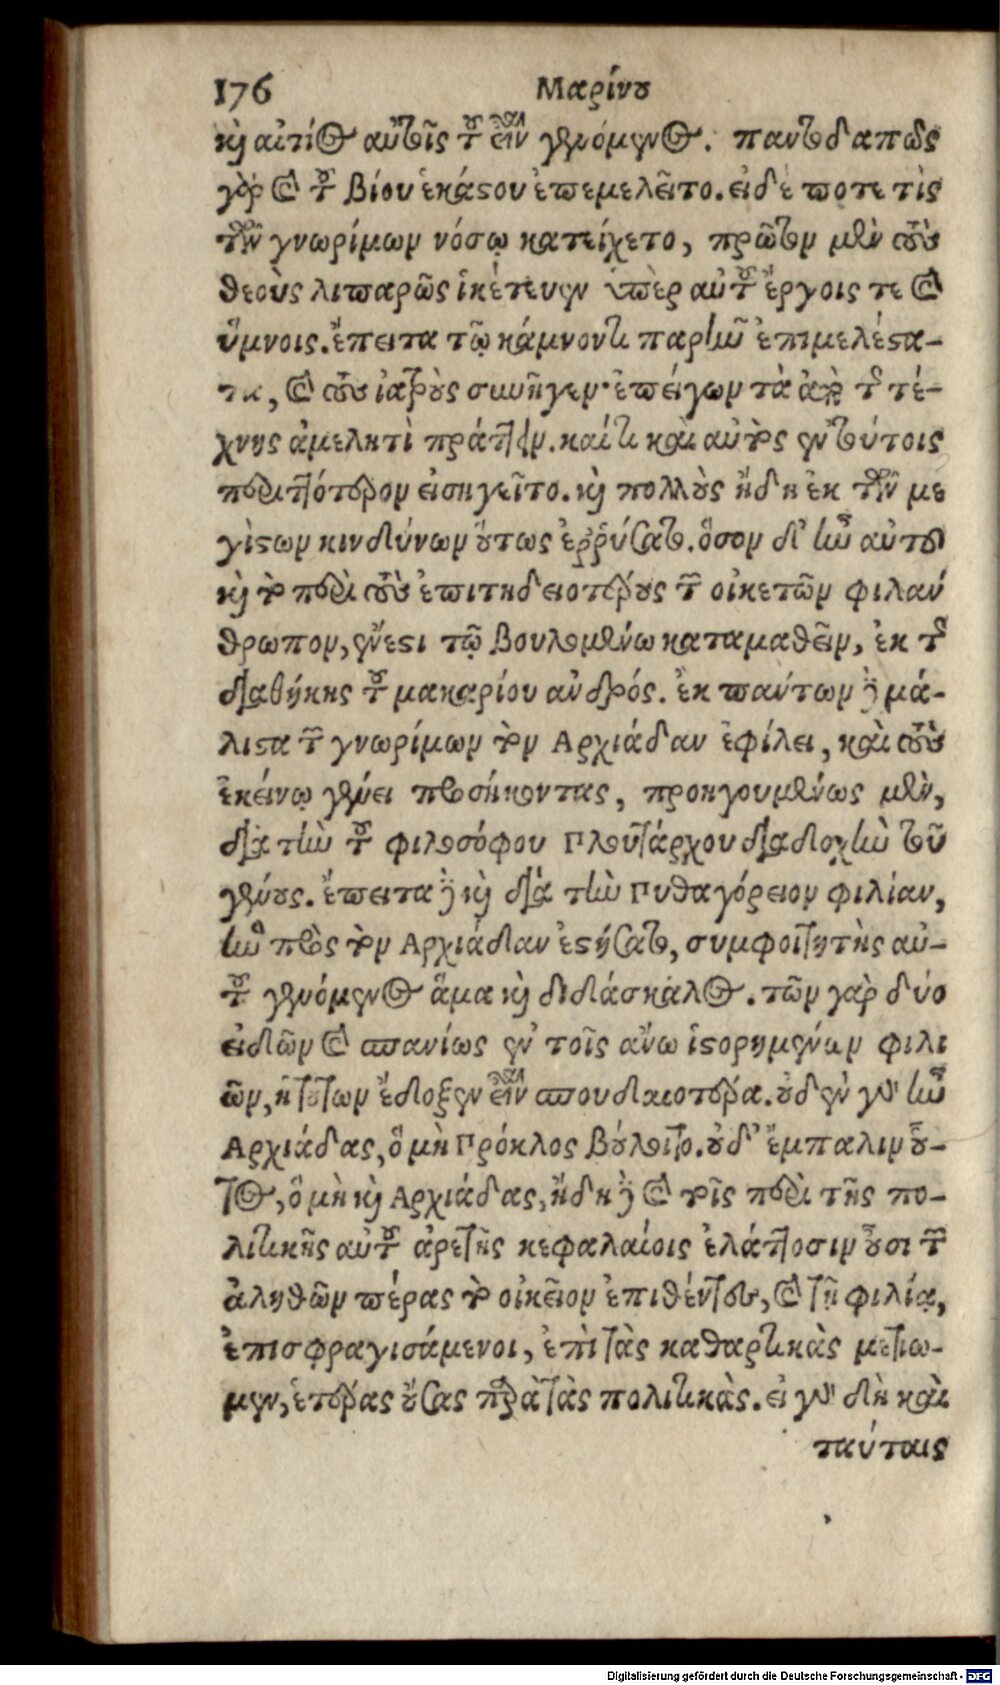 176 Μαρίνου
καὶ αἴτιος αὐτοῖς τοῦ εἶναι γενόμενος. παντοδαπῶς
γὰρ καὶ τοῦ βίου ἑκάστου ἐπεμελεῖτο. εἰ δέ ποτε τὶς
τῶν γνωρίμων νόσῳ κατείχετο, πρῶτον μὲν τοὺς
θεοὺς λιπαρῶς ἱκέτευεν ὑπὲρ αὐτοῦ ἔργοις τε καὶ
ὕμνοις. ἔπειτα τῷ κάμνοντι παρῆν ἐπιμελέστα-
τα, καὶ τοὺς ἰατροὺς συνῆγεν· ἐπείγων τὰ ἀπὸ τῆς τέ-
χνης ἀμελητὶ πράττειν. καί τι καὶ αὐτὸς ἐν τούτοις
περιττότερον εἰσηγεῖτο. καὶ πολλοὺς ἤδη ἐκ τῶν με
γίστων κινδύνων οὕτως ἐῤῥύσατο. ὅσον δ' ἦν αὐτοῦ
καὶ τὸ περὶ τοὺς ἐπιτηδειοτέρους τῶν οἰκετῶν φιλάν
θρωπον, ἔνεστι τῷ βουλομένῳ καταμαθεῖν, ἐκ τῆς
διαθήκης τοῦ μακαρίου ἀνδρός. ἐκ πάντων δὲ μά-
λιστα τῶν γνωρίμων τὸν Αρχιάδαν ἐφίλει, καὶ τοὺς
ἐκείνῳ γένει προσήκοντας, προηγουμένως μὲν,
διὰ τὴν τοῦ φιλοσόφου Πλουτάρχου διαδοχὴν τοῦ
γένους. ἔπειτα δὲ καὶ διὰ τὴν Πυθαγόρειον φιλίαν,
ἣν πρὸς τὸν Αρχιάδαν ἐστήσατο, συμφοιτητὴς αὐ-
τοῦ γενόμενος ἅμα καὶ διδάσκαλος. τῶν γὰρ δύο
εἰδῶν καὶ σπανίως ἐν τοῖς ἄνω ἱστορημένων φιλι
ῶν, ἡ τούτων ἔδοξεν εἶναι σπουδαιοτέρα. οὐδὲν γὰρ ἦν
Αρχιάδας, ὃ μὴ Πρόκλος βούλοιτο. οὐδ' ἔμπαλιν οὗ-
τος, ὃ μὴ καὶ Αρχιάδας, ἤδη δὲ καὶ τοῖς περὶ τῆς πο-
λιτικῆς αὐτοῦ ἀρετῆς κεφαλαίοις ἐλάττοσιν οὖσι τῶν
ἀληθῶν πέρας τὸ οἰκεῖον ἐπιθέντες, καὶ τῇ φιλίᾳ,
ἐπισφραγισάμενοι, ἐπὶ τὰς καθαρτικὰς μετίω-
μεν, ἑτέρας οὔσας παρὰ τὰς πολιτικὰς. εἰ γὰρ δὴ καὶ
ταύταις
Digitalisierung gefördert durch die Deutsche Forschungsgemeinschaft - DFG